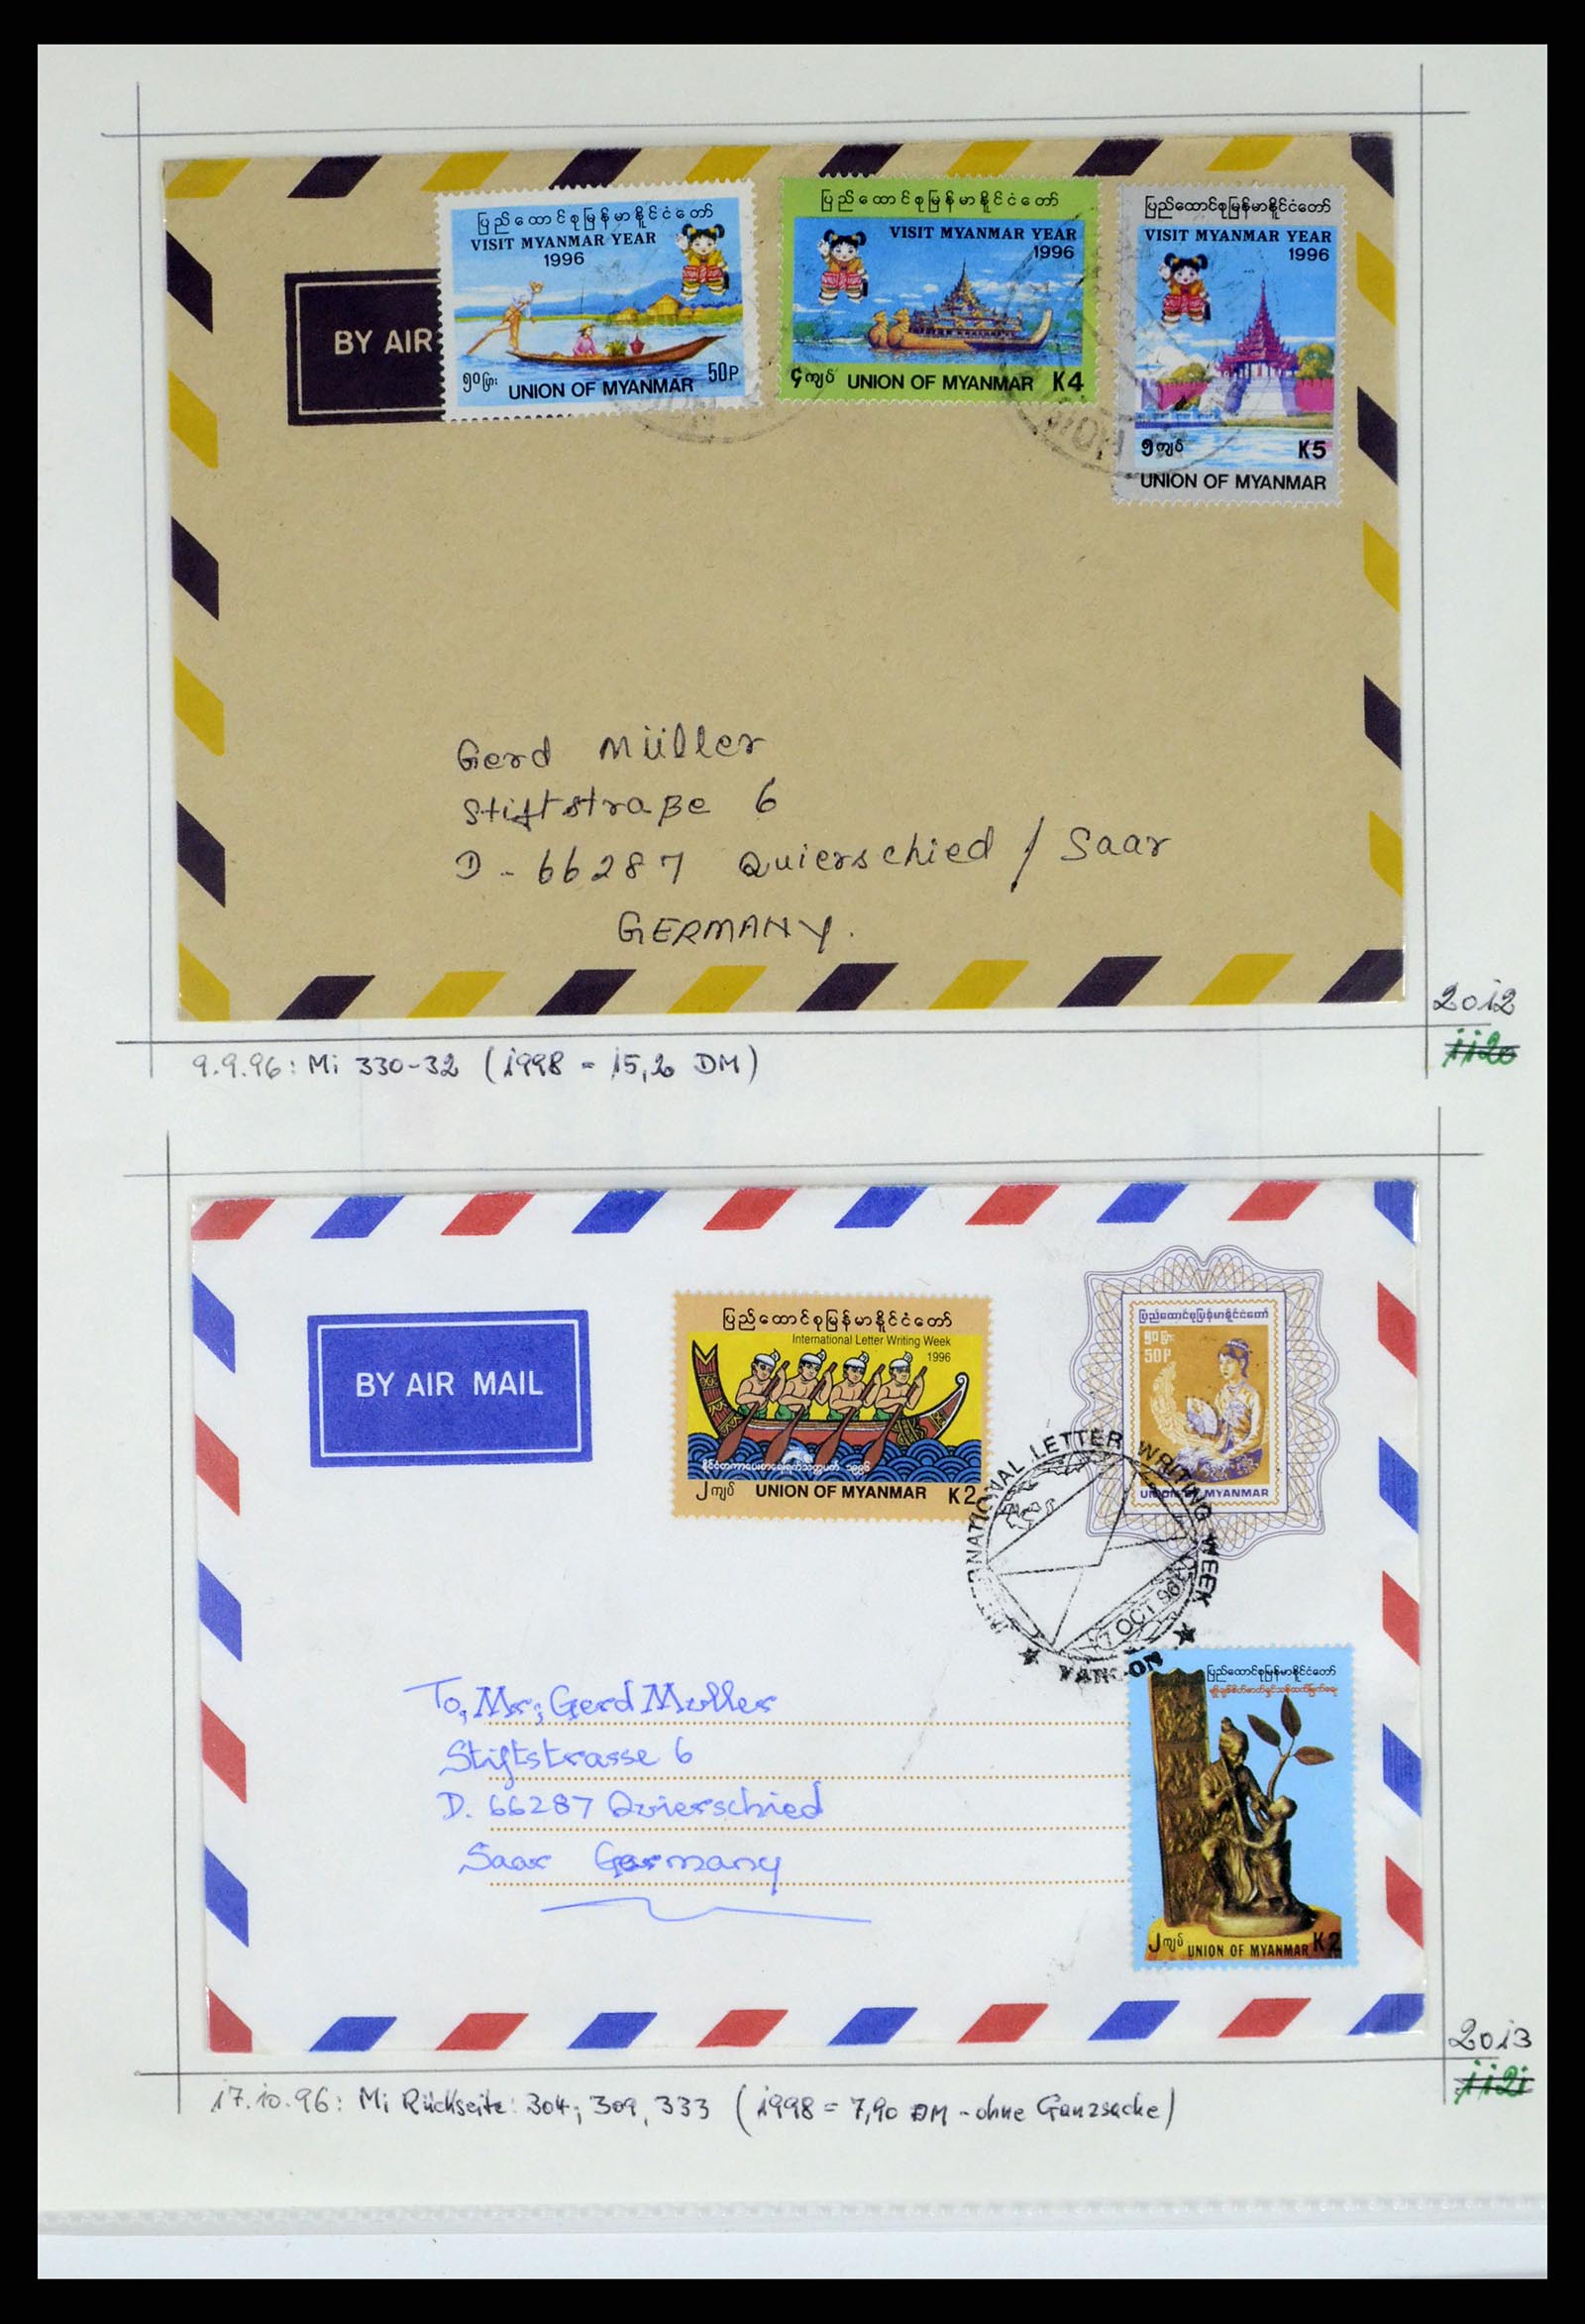 ပြည်ထောင်စုမြန်မာနိုင်ငံတော်
VISIT MYANMAR YEAR
1996
၅၀ပြား
UNION OF MYANMAR
50P
ပြည်ထောင်စုမြန်မာနိုင်ငံတော်
VISIT MYANMAR YEAR
1996
၄ကျပ်
UNION OF MYANMAR
K4
ပြည်ထောင်စုမြန်မာနိုင်ငံတော်
VISIT MYANMAR YEAR
1996
၅ကျပ်
K5
UNION OF MYANMAR
BY AIR
Gerd Müller
Stiftstraße 6
D - 66287 Quierschied / Saar
GERMANY.
2012
1120
9.9.96: Mi 330-32 (1998 = 15,20 DM)
BY AIR MAIL
ပြည်ထောင်စုမြန်မာနိုင်ငံတော်
International Letter Writing Week
1996
နိုင်ငံတကာပေးစာရေးရက်သတ္တပတ် ၁၉၉၆
၂ကျပ်
UNION OF MYANMAR
K2
ပြည်ထောင်စုမြန်မာနိုင်ငံတော်
၅၀ပြား
50P
UNION OF MYANMAR
INTERNATIONAL LETTER WRITING WEEK
7 OCT 96
YANGON
To, Mr; Gerd Muller
Stiftstrasse 6
D. 66287 Quierschied
Saar Germany
ပြည်ထောင်စုမြန်မာနိုင်ငံတော်
၂ကျပ်
UNION OF MYANMAR
K2
2013
1121
17.10.96: Mi Rückseite: 304; 309, 333 (1998 = 7,90 DM - ohne Ganzsache)